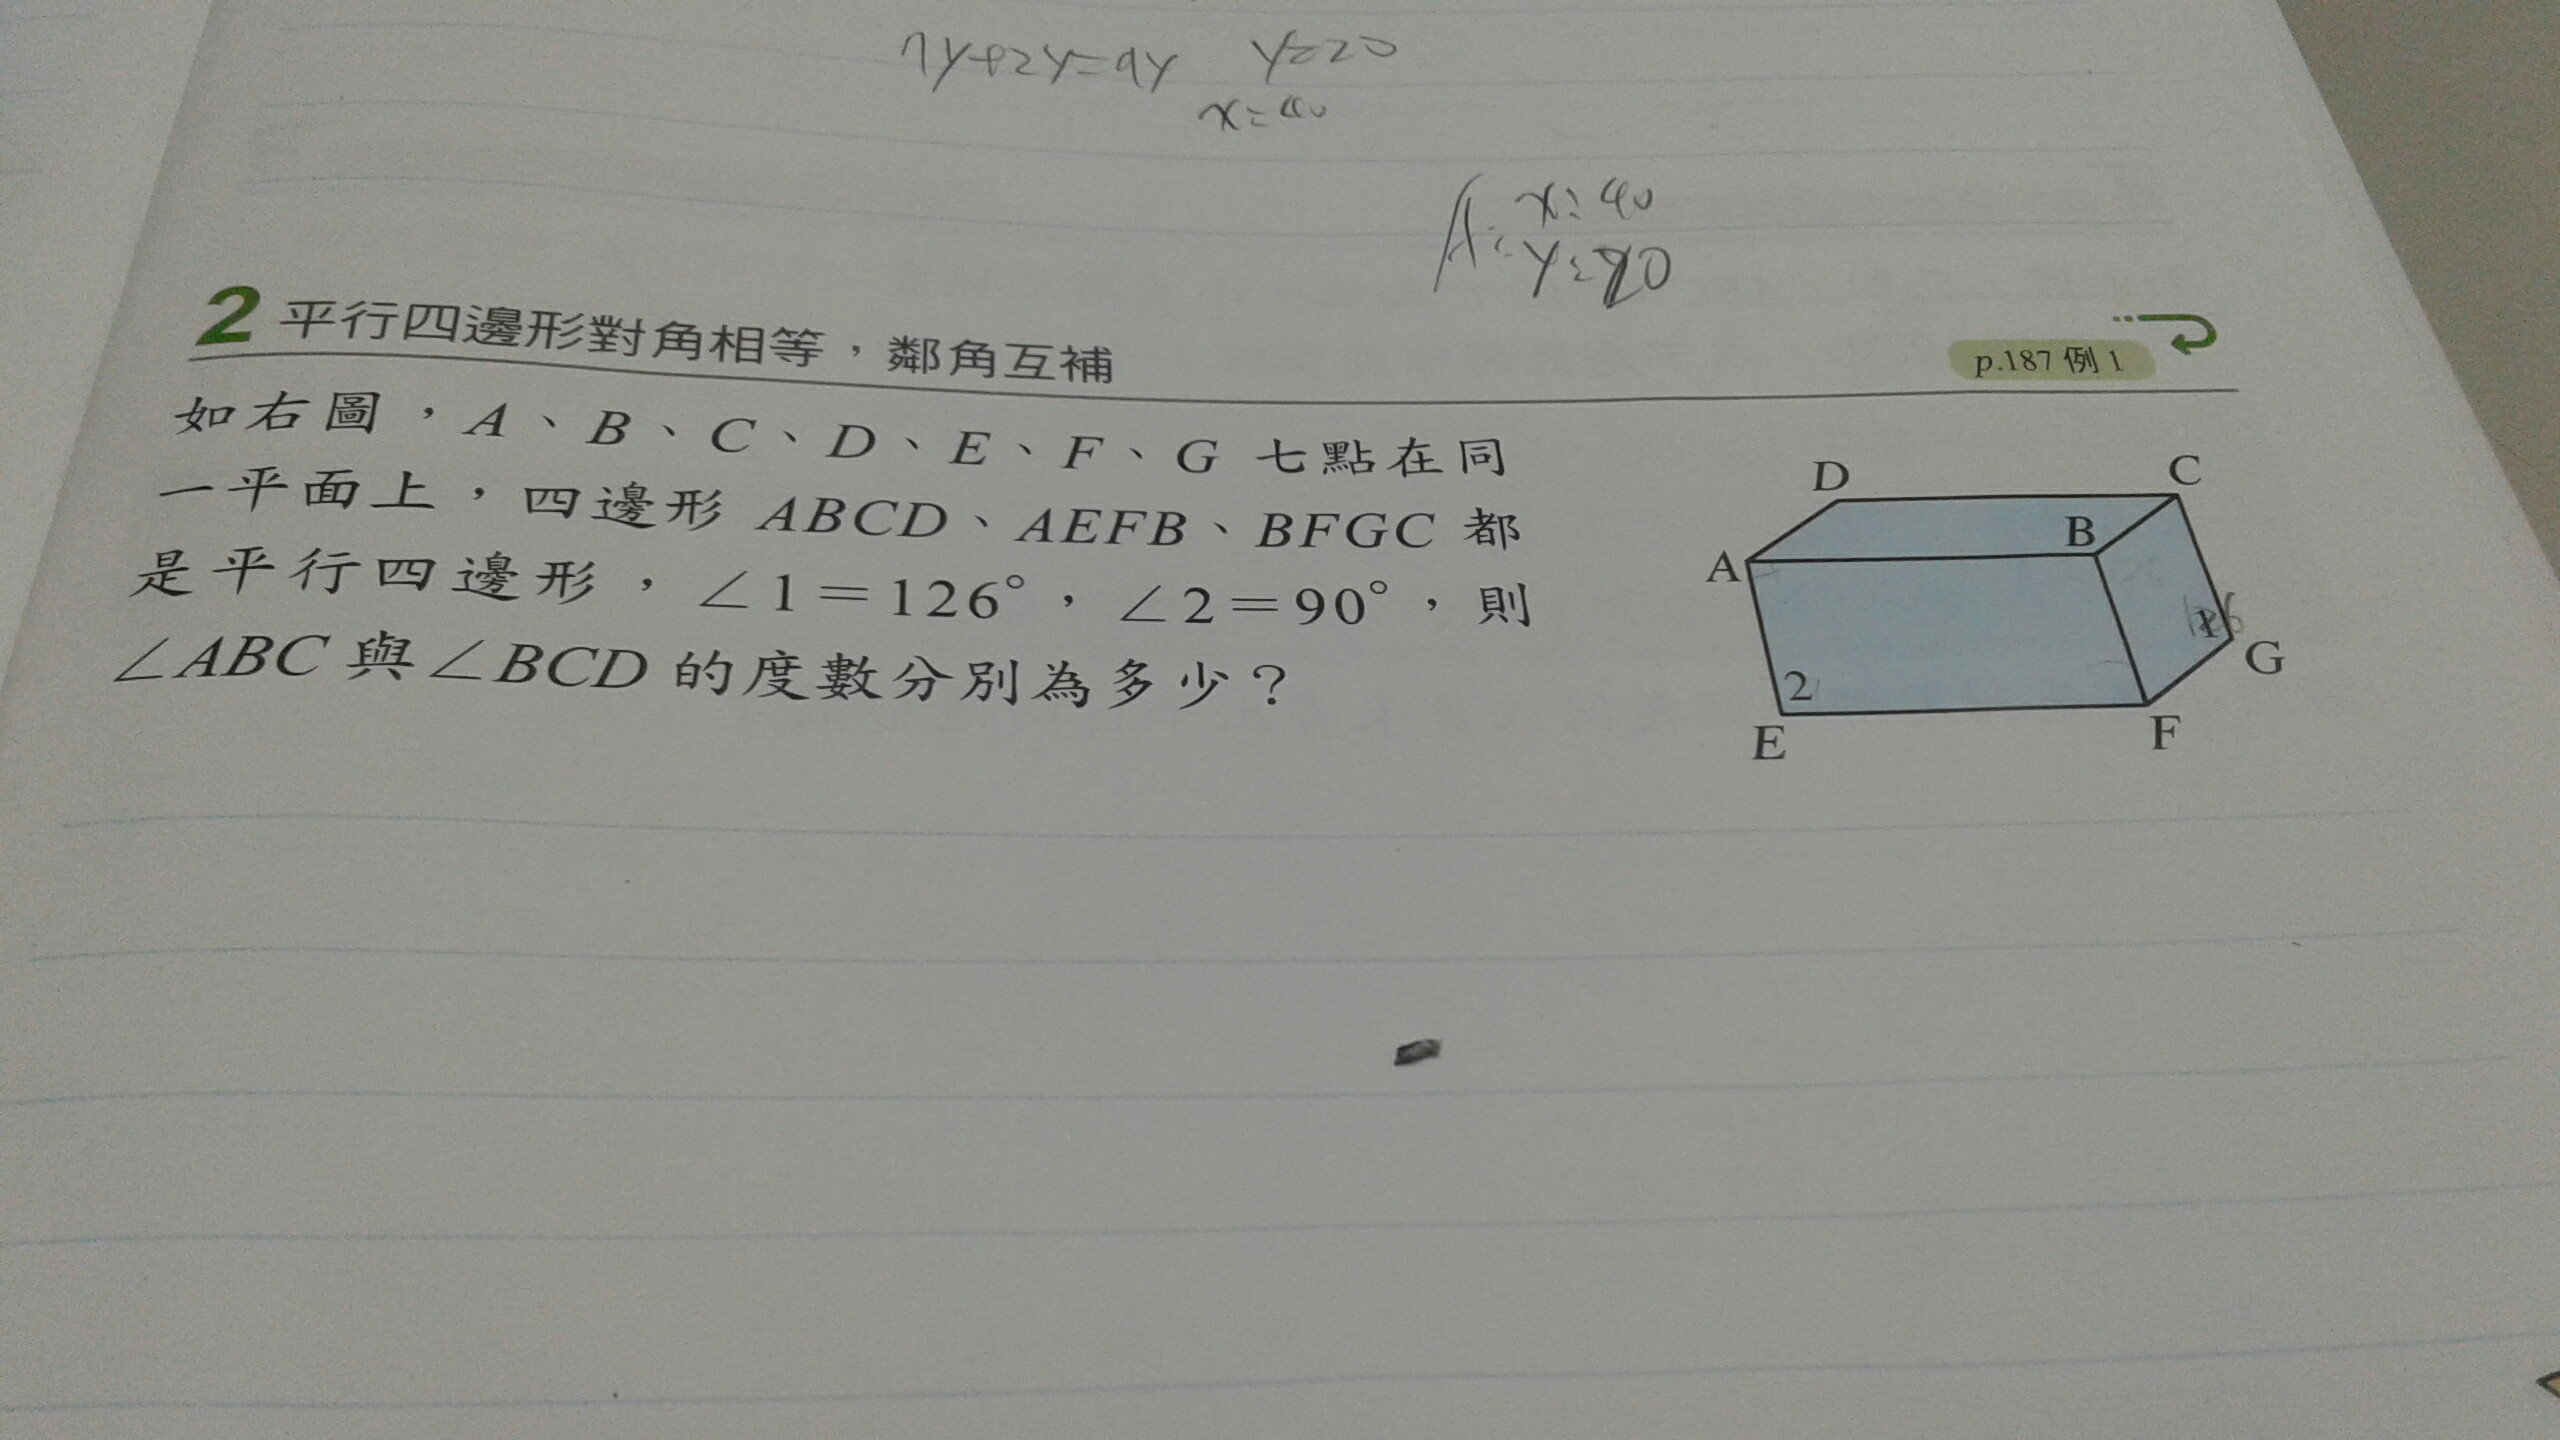 7y+2y=9y y=20
x=40
2 平行四邊形對角相等，鄰角互補
p.187 例 1
如右圖，A、B、C、D、E、F、G 七點在同
一平面上，四邊形 ABCD、AEFB、BFGC 都
是平行四邊形，∠1＝126°，∠2＝90°，則
∠ABC 與∠BCD 的度數分別為多少？
D C
A B
1
G
2
E F